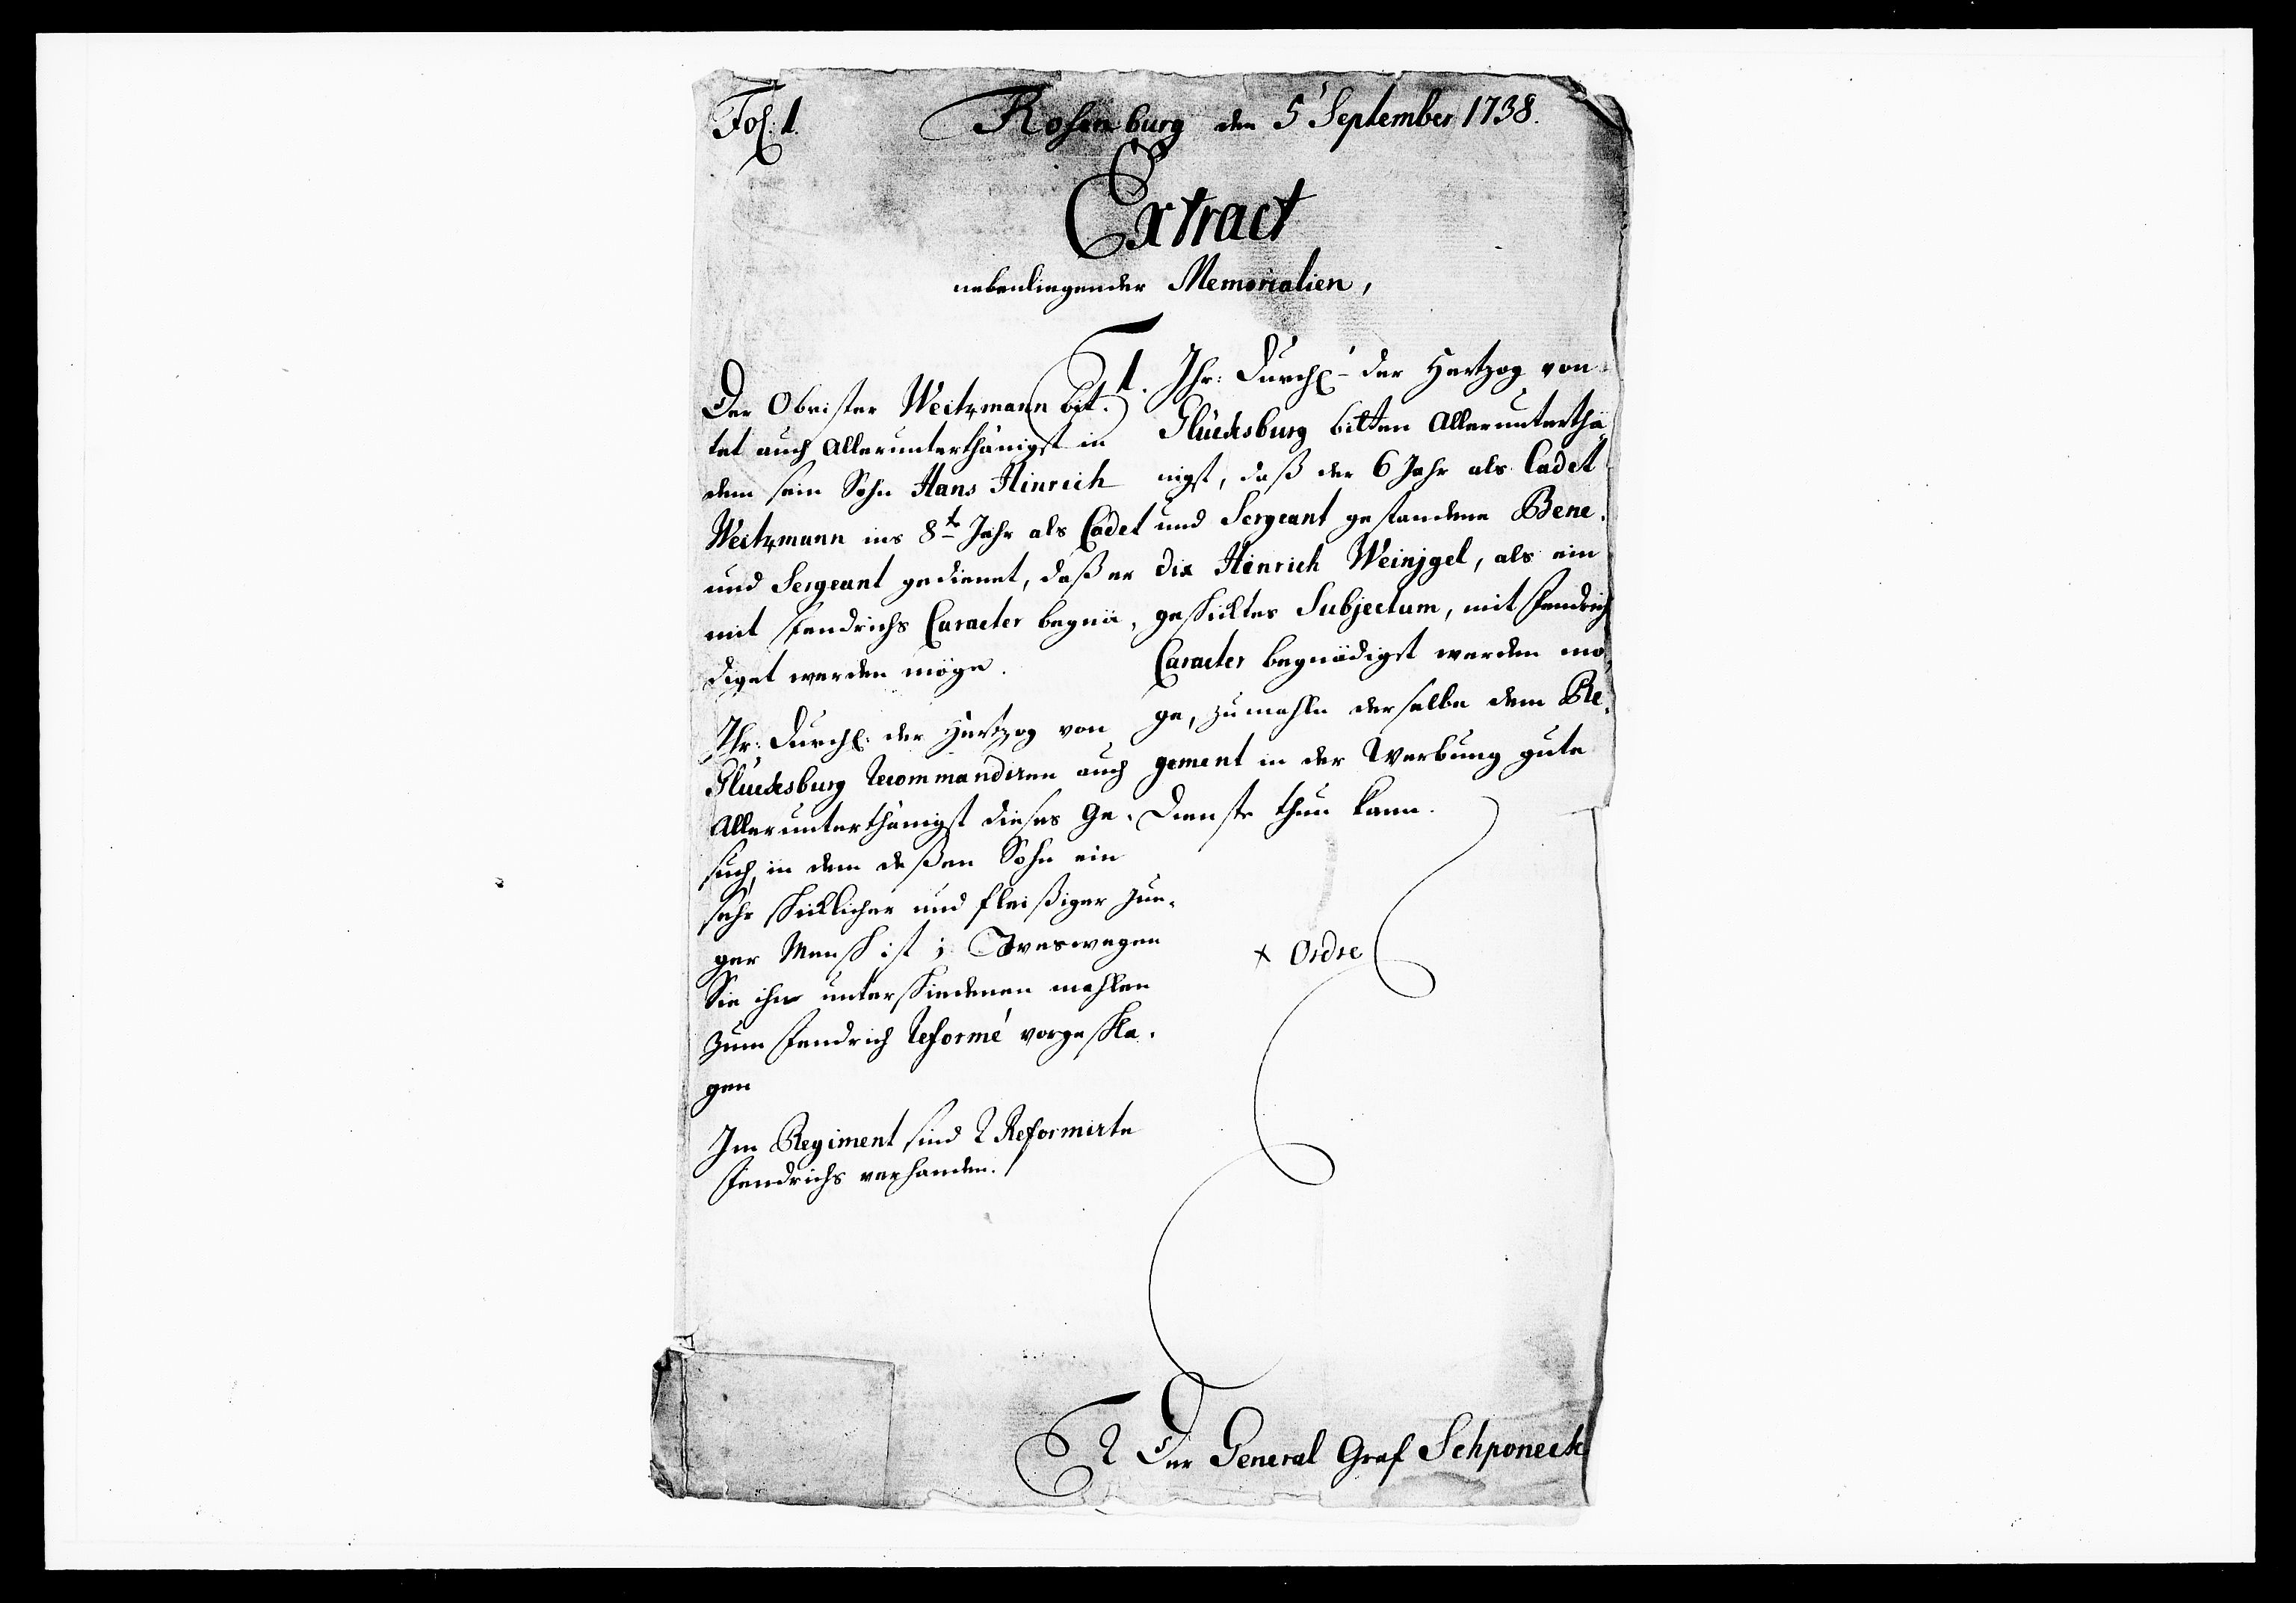 Fol: 1.
Rosenburg den 5' September 1738.
Extract
nebenliegender Memorialien,
Der Obrister Weitzmann bit-
tet auch Allerunterthänigst in
dem sein Sohn Hans Hinrich
Weitzmann ins 8te Jahr als Cadet
und Sergeant gedienet, daß er
mit Fendrichs Caracter begnä-
diget werden möge.
Ihr: Durchl: der Hertzog von
Glucksburg Recommandiren auch
Allerunterthänigst dieses Ge-
such, in dem deßen Sohn ein
sehr schicklicher und fleißiger jun-
ger Mensch ist;
Sie ihn unterschiedenen mahlen
zum Fendrich Reformé vorgeschla-
gen
Im Regiment sind 2 Reformirte
Fendrichs verhanden.
1. Ihr: Durchl- der Hertzog von
Glücksburg bitten Allerunterthä-
nigst, daß der 6 Jahr als Cadet
und Sergeant gestandene Bene-
dix Hinrich Weinjgel, als ein
geschicktes Subjectum, mit Fendrich
Caracter begnädigt werden mö-
ge, zumahln derselbe dem Re-
gement in der Werbung gute
Dienste thun kann.
x Ordre
2 Der General Graf Schponeck